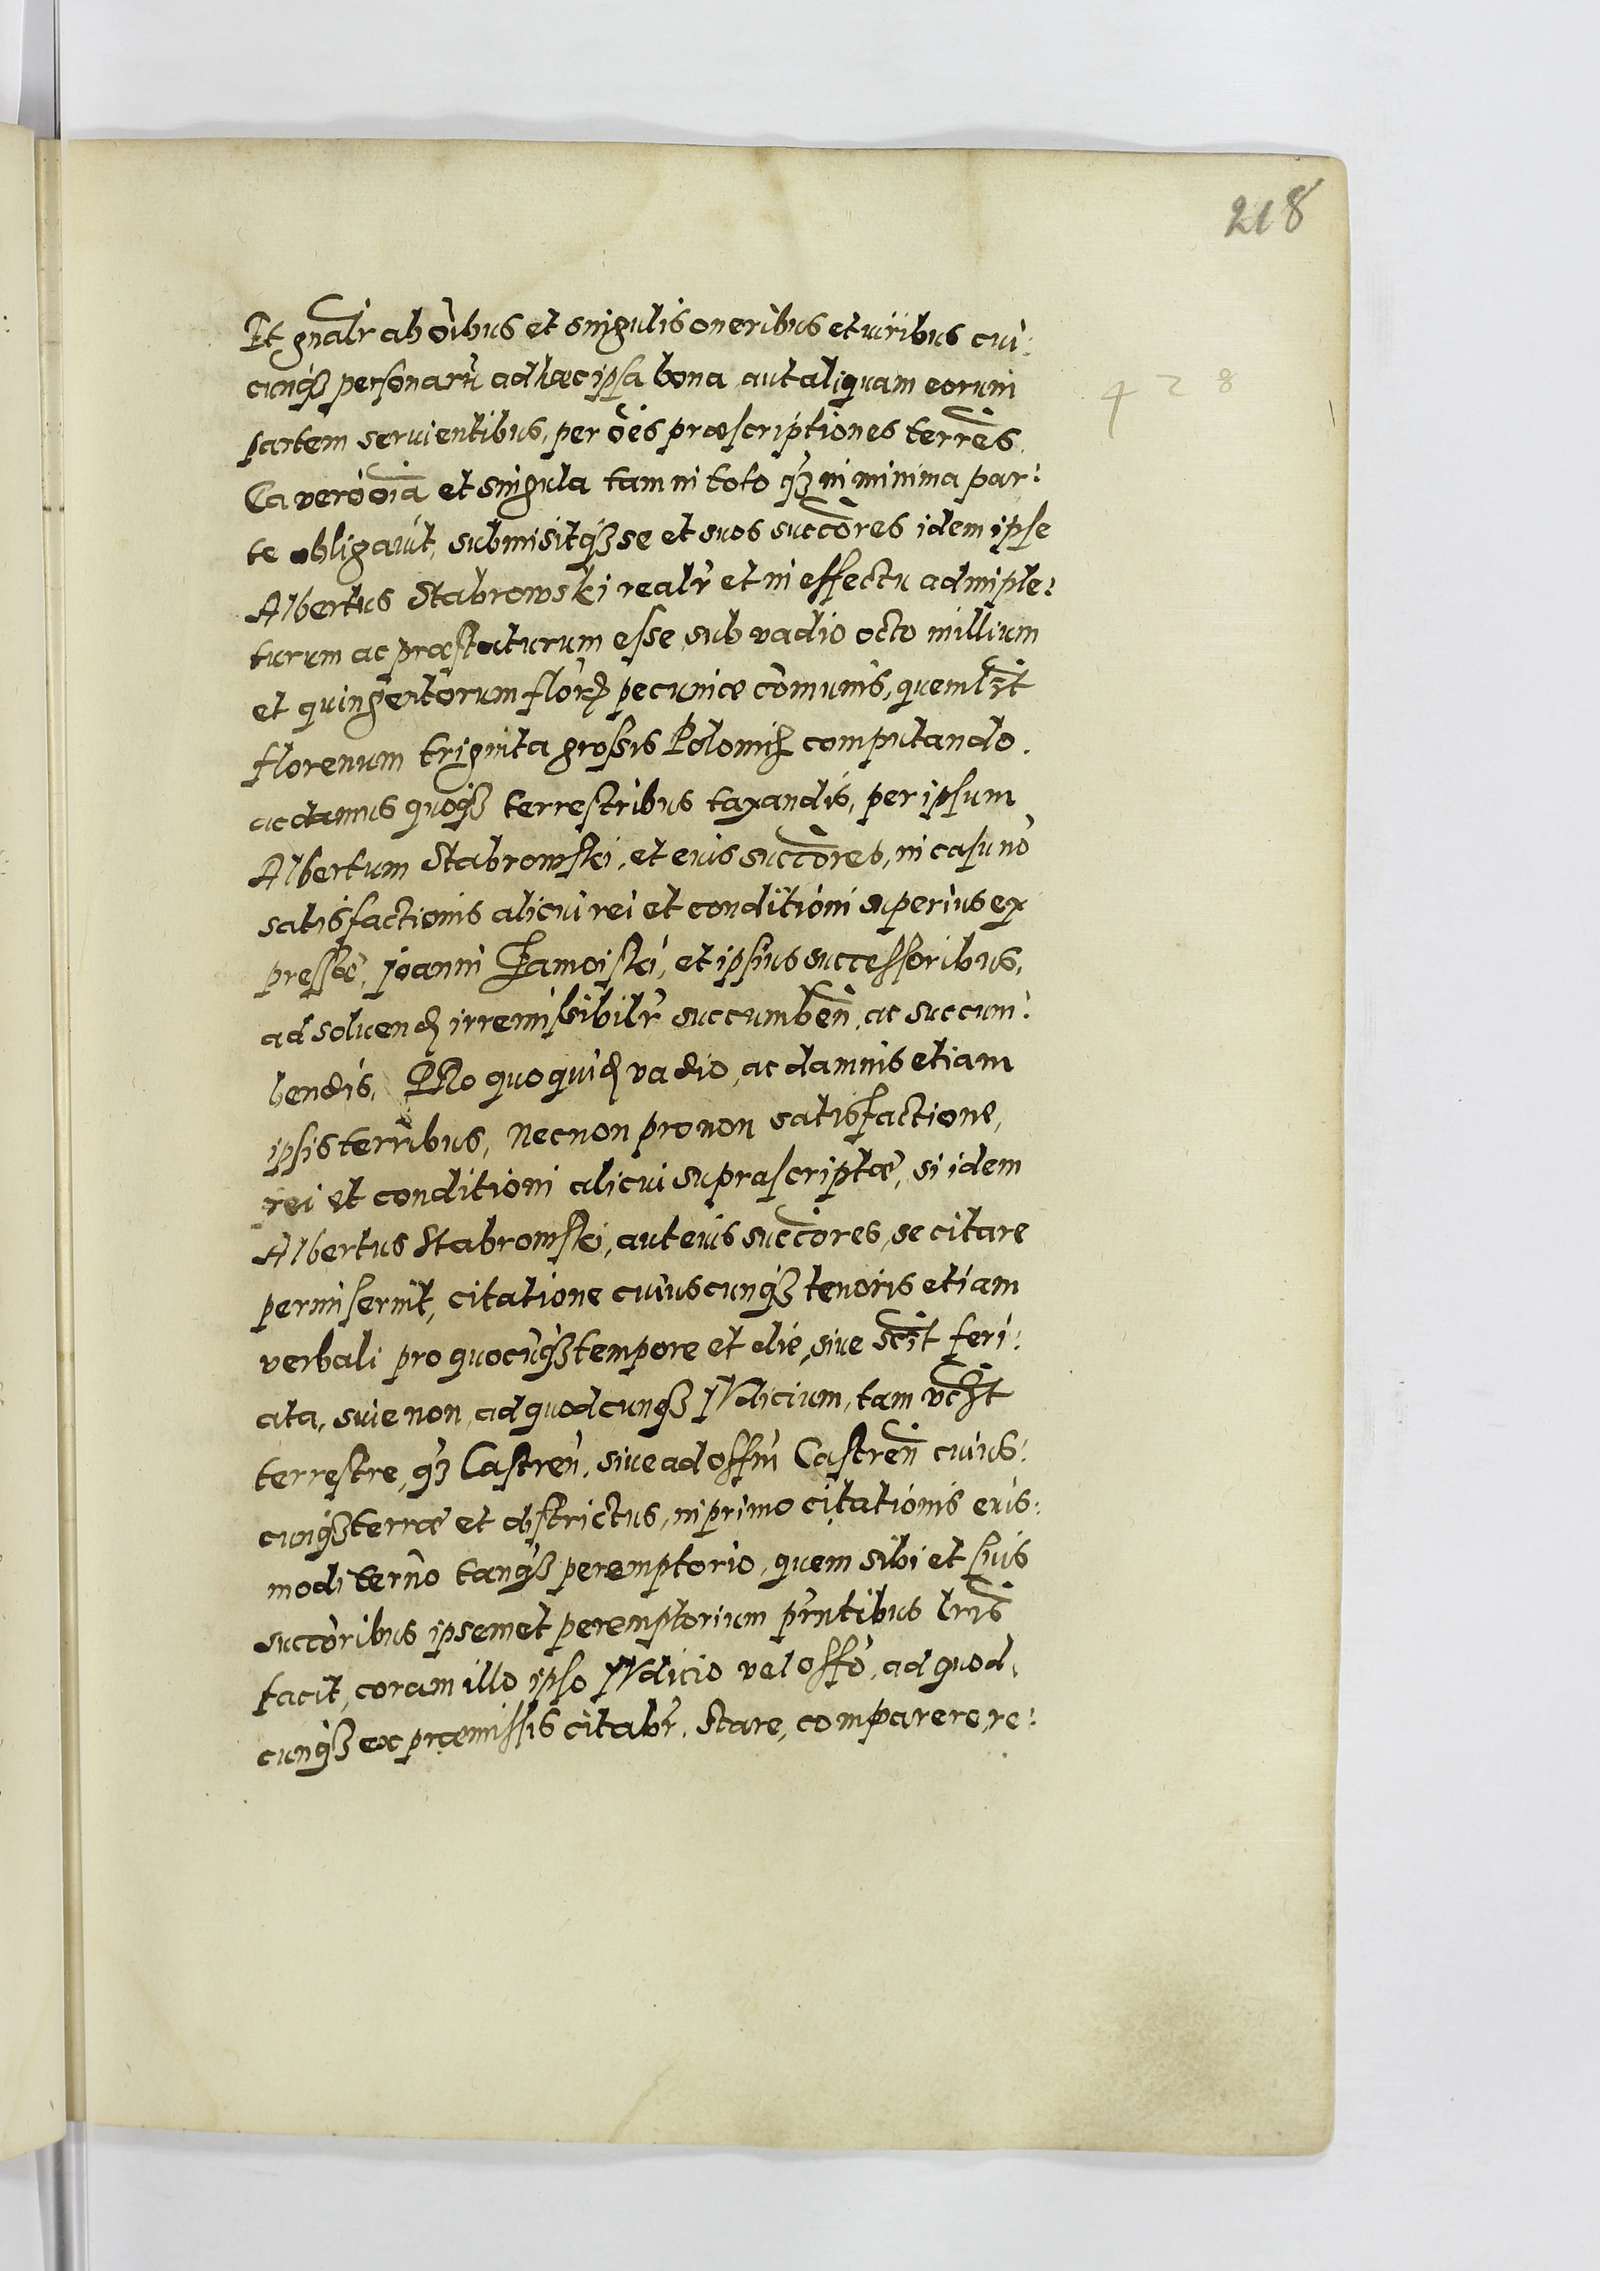 218
Et gnalr ab oibus et singulis oneribus et uiribus cui:
cunqꝫ personarū ad hæc ipsa bona aut aliquam eorum
428
partem seruientibus, per oēs præscriptiones terrēs.
Ea vero oīa et singula tam in toto qꝫ in minima par:
te obligauit, submisitqꝫ se et suos succōres idem ipse
Albertus Stabrowski realr et in effectu adimple:
turum ac præstaturum esse, sub vadio octo millium
et quingentorum florꝫ pecuniæ cōmunis, quemlꝫt
florenum triginta grossis Poloniꝫ computando.
ac damnis quoqꝫ terrestribus taxandis, per ipsum
Albertum Stabrowski, et eius succōres, in casu nō
satisfactionis alicui rei et conditioni superius ex
pressæ, Joanni Zamoiski, et ipsius successoribus,
ad soluendꝫ irremissibilr succumbēn, ac succum:
bendis. PRo quo quidꝫ vadio, ac damnis etiam
ipsis terribus, necnon pro non satisfactione,
rei et conditioni alicui suprascriptæ, si idem
Albertus Stabrowski, aut eius succōres, se citare
permiserint, citatione cuiuscunqꝫ tenoris etiam
verbali pro quocūqꝫ tempore et die, siue scīt feri:
ata, siue non, ad quodcunqꝫ IVdicium, tam vcꝫt
terrestre, qꝫ Castren, siue ad offm Castren cuius:
cunqꝫ terræ et districtus, in primo citationis eius:
modi termo tanqꝫ peremptorio, quem sibi et suis
succōribus ipsemet peremptorium pntibus lris
facit, coram illo ipso IVdicio vel offo, ad quod:
cunqꝫ ex præmissis citabr. Stare, comparere, re: